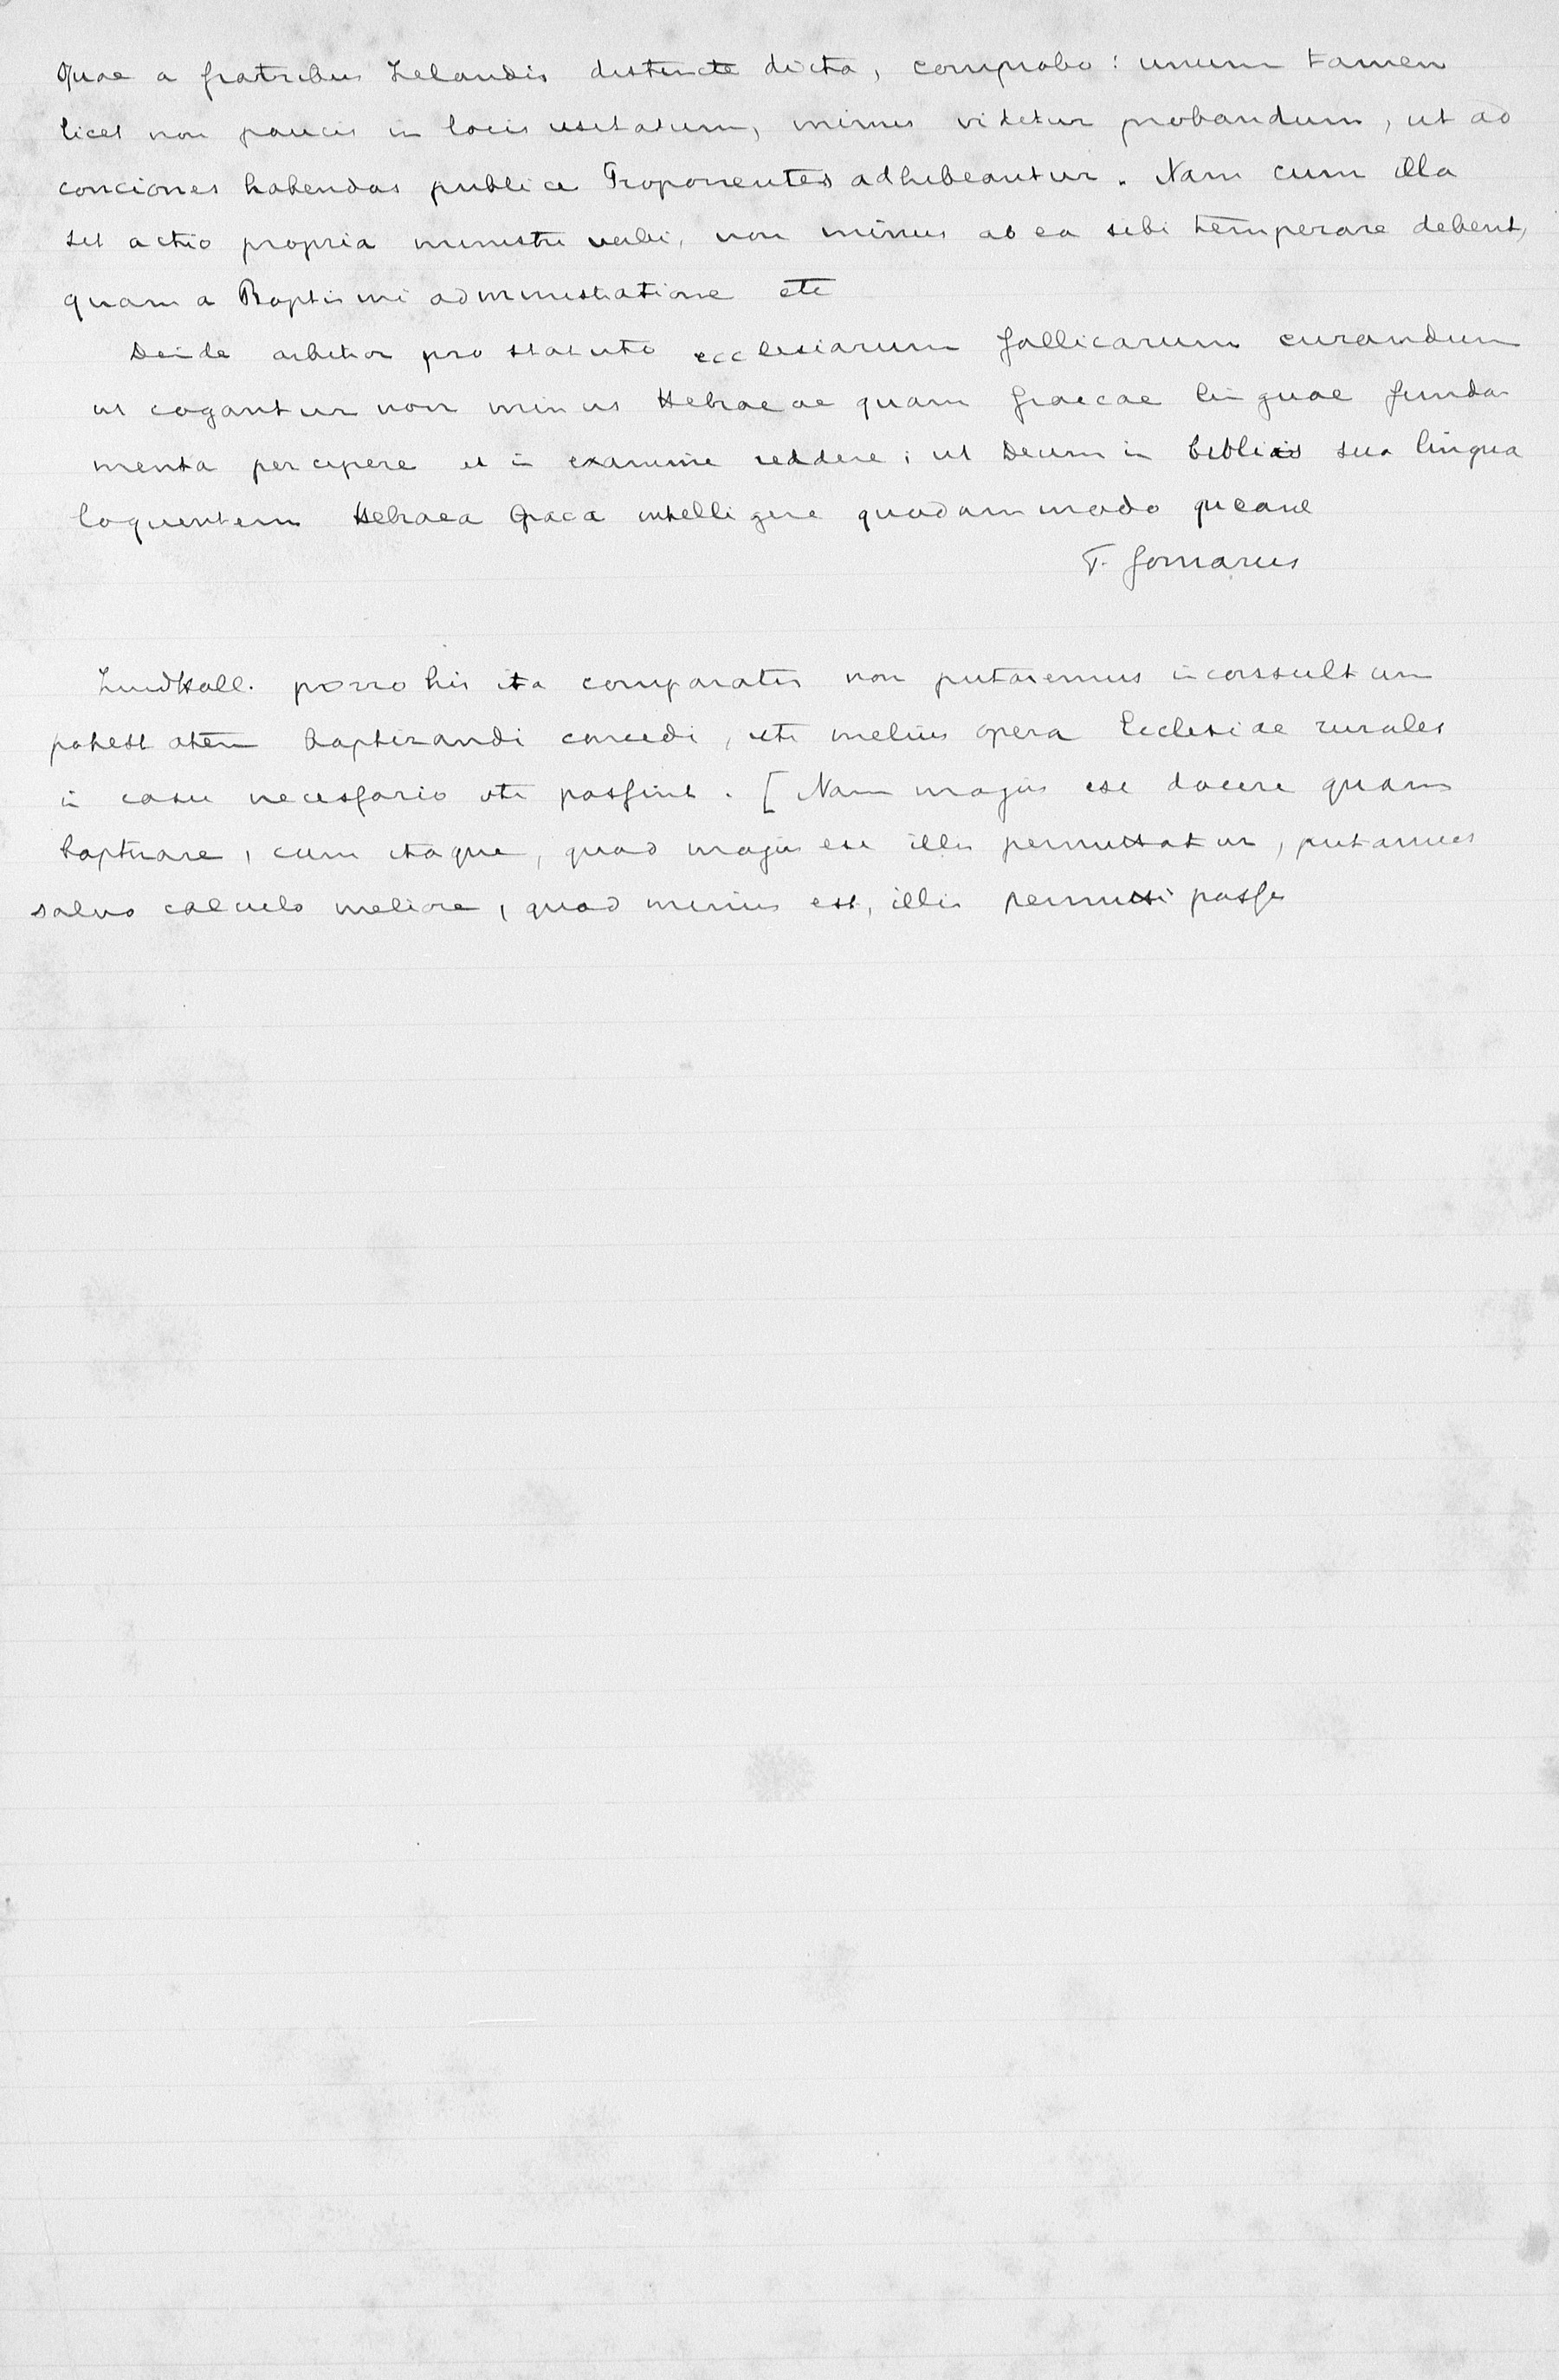 Quae a fratribus Zelandis distincte dicta, comprobo: unum tamen
licet non paucis in locis usitatum, minus videtur probandum, ut ad
conciones habendas publice Proponentes adhibeantur. Nam cum illa
sit actio propria ministri verbi, non minus ab ea sibi temperare debent,
quam a Baptismi administratione etc
Deinde arbitror pro statuto ecclesiarum Gallicarum curandum
ut cogantur non minus Hebraeae quam Graecae linguae funda
menta percipere et in examine reddere; ut Deum in bibliis sua lingua
loquentem Hebraea Graeca intelligere quodammodo queant
F. Gomarus
Zuidholl. porro his ita comparatis non putaremus inconsultum
potestatem Baptizandi concedi, uti melius opera Ecclesiae rurales
in casu necessario uti possint. [Nam majus est docere quam
baptizare, cum itaque, quod majus est illis permittatur, putamus
salvo calculo meliore, quod minus est, illis permitti posse